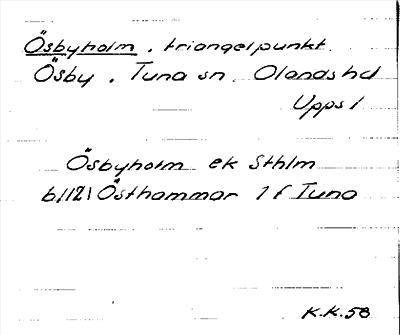 Ösbyholm . triangelpunkt.
Ösby . Tuna sn. Olands hd
Upps l
Ösbyholm ek Sthlm
b/12\ Östhammar 1 f Tuna
K.K.58